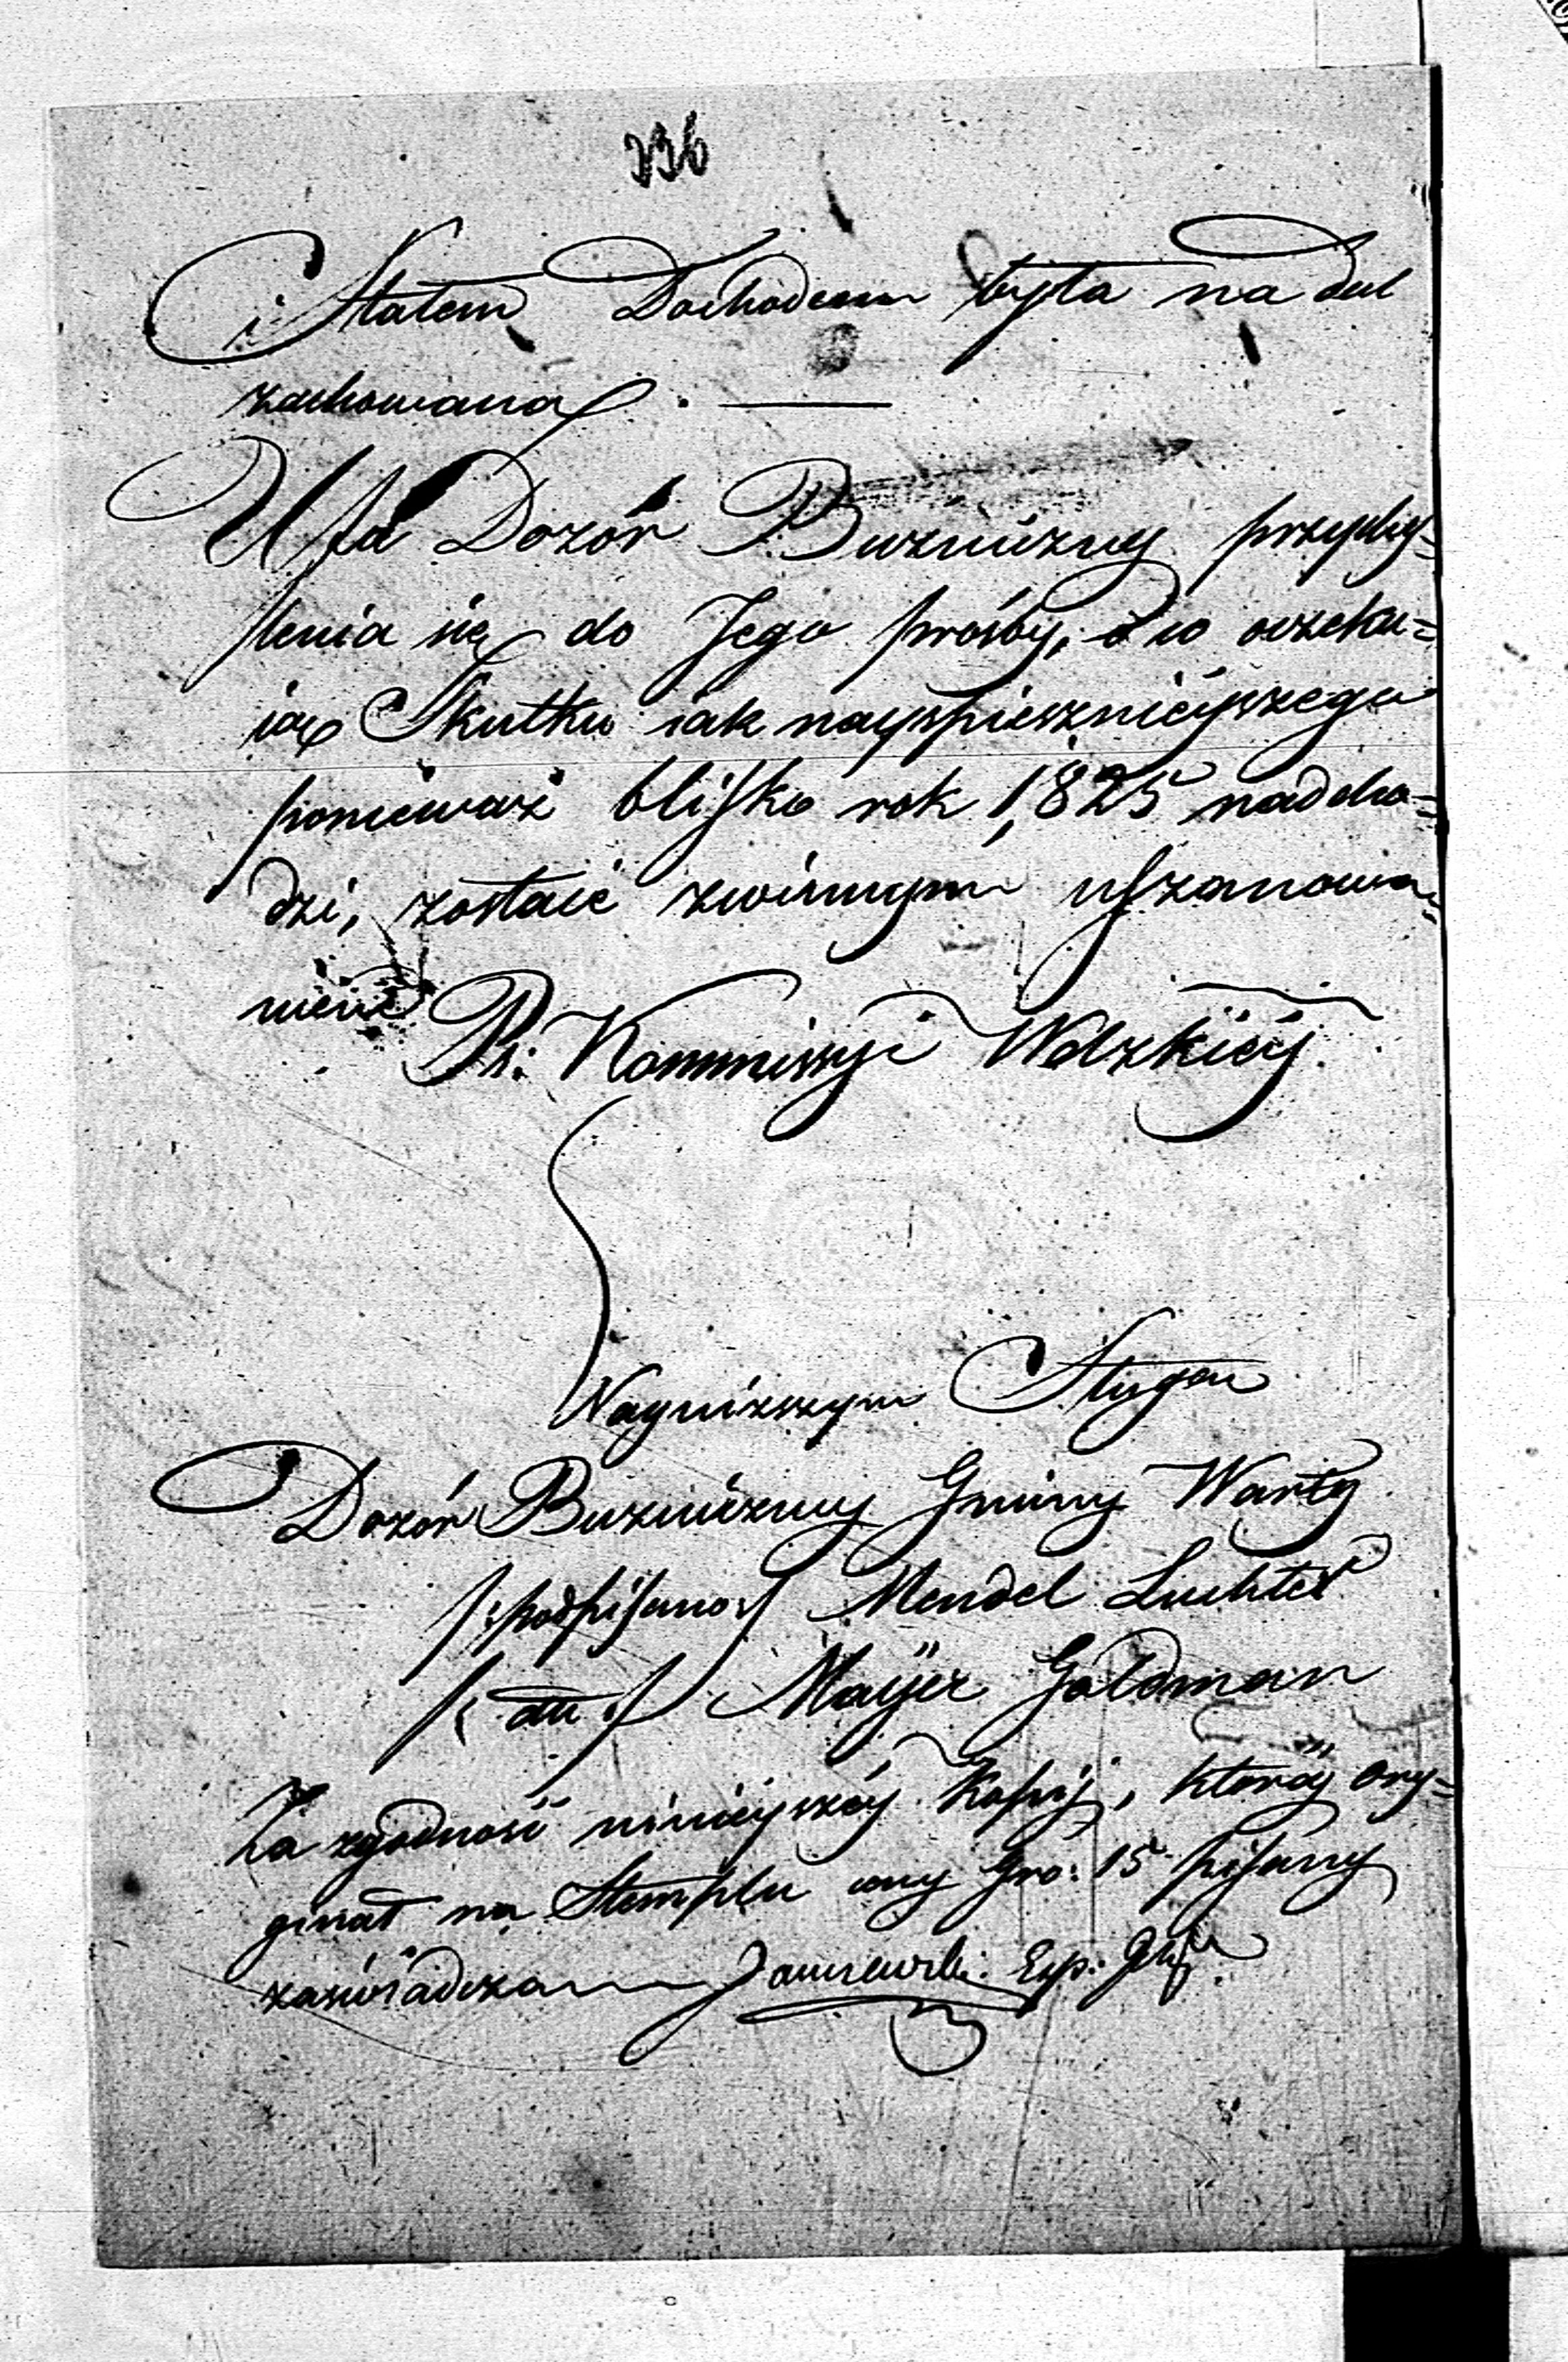 336
i Statem Dochodem była na dal
zachowana. —
Ufa Dozór Buzniczny przychy=
lenia się do Jego prośby, a w oczeku=
iąc Skutku iak nayspieszniéyszego
ponieważ blisko rok 1,825 nadcho=
dzi, zostaić zwinnym uszanowa=
nienie
Pr: Kommissyi Wdzkiéy
Nayniższym Sługą
Dozór Buzniczny Gminy Warty
/:podpisano:/ Mendel Luchter
/: dtt :/ Mayer Goldman
Za zgodność ninieyszéy Kopij, któréy ory=
ginał na Stemplu ceny Gro: 15 pisany
zaświadczam Janiszewski. Exp: